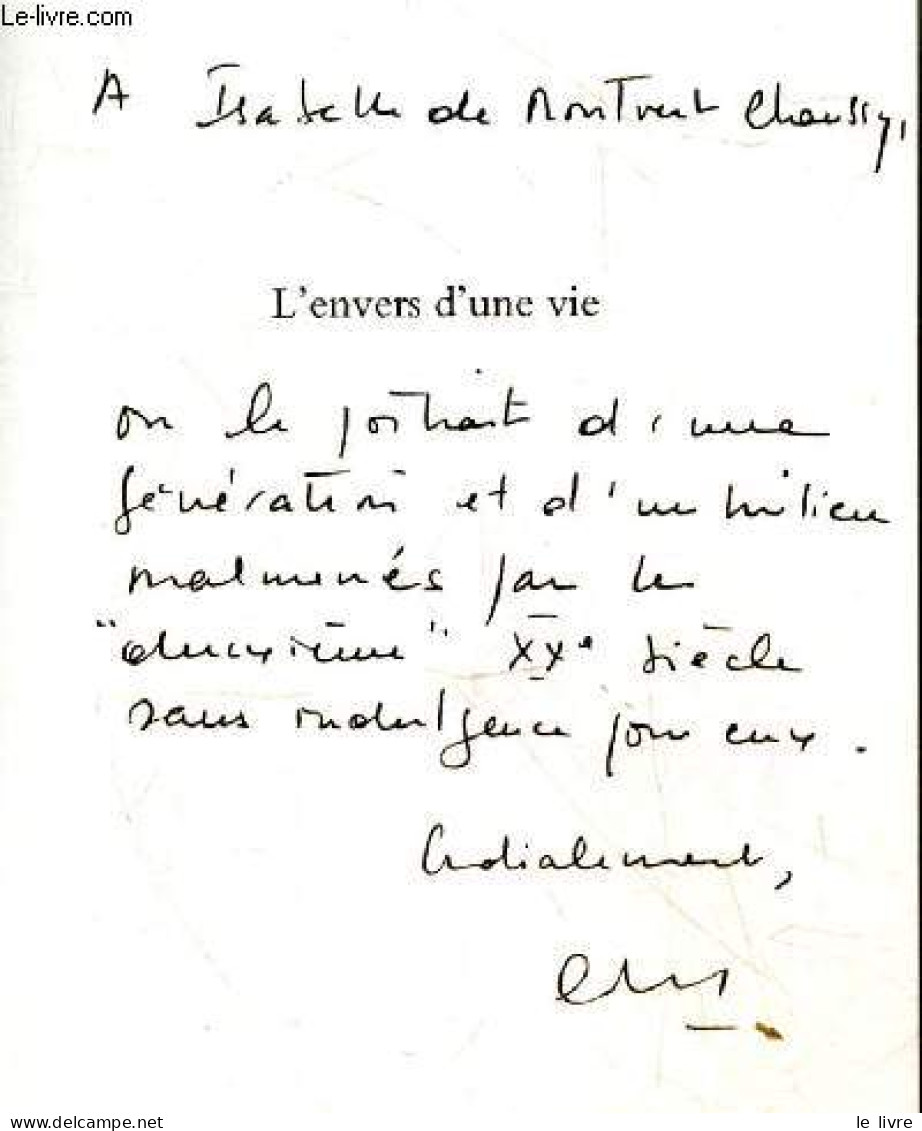 Le-livre.com
A Isabelle de Montvert Chaussy,
L'envers d'une vie
ou le portrait d'une
génération et d'un milieu
malmenés par le
"deuxième" XXe siècle
sans indulgence pour eux.
Cordialement,
le livre